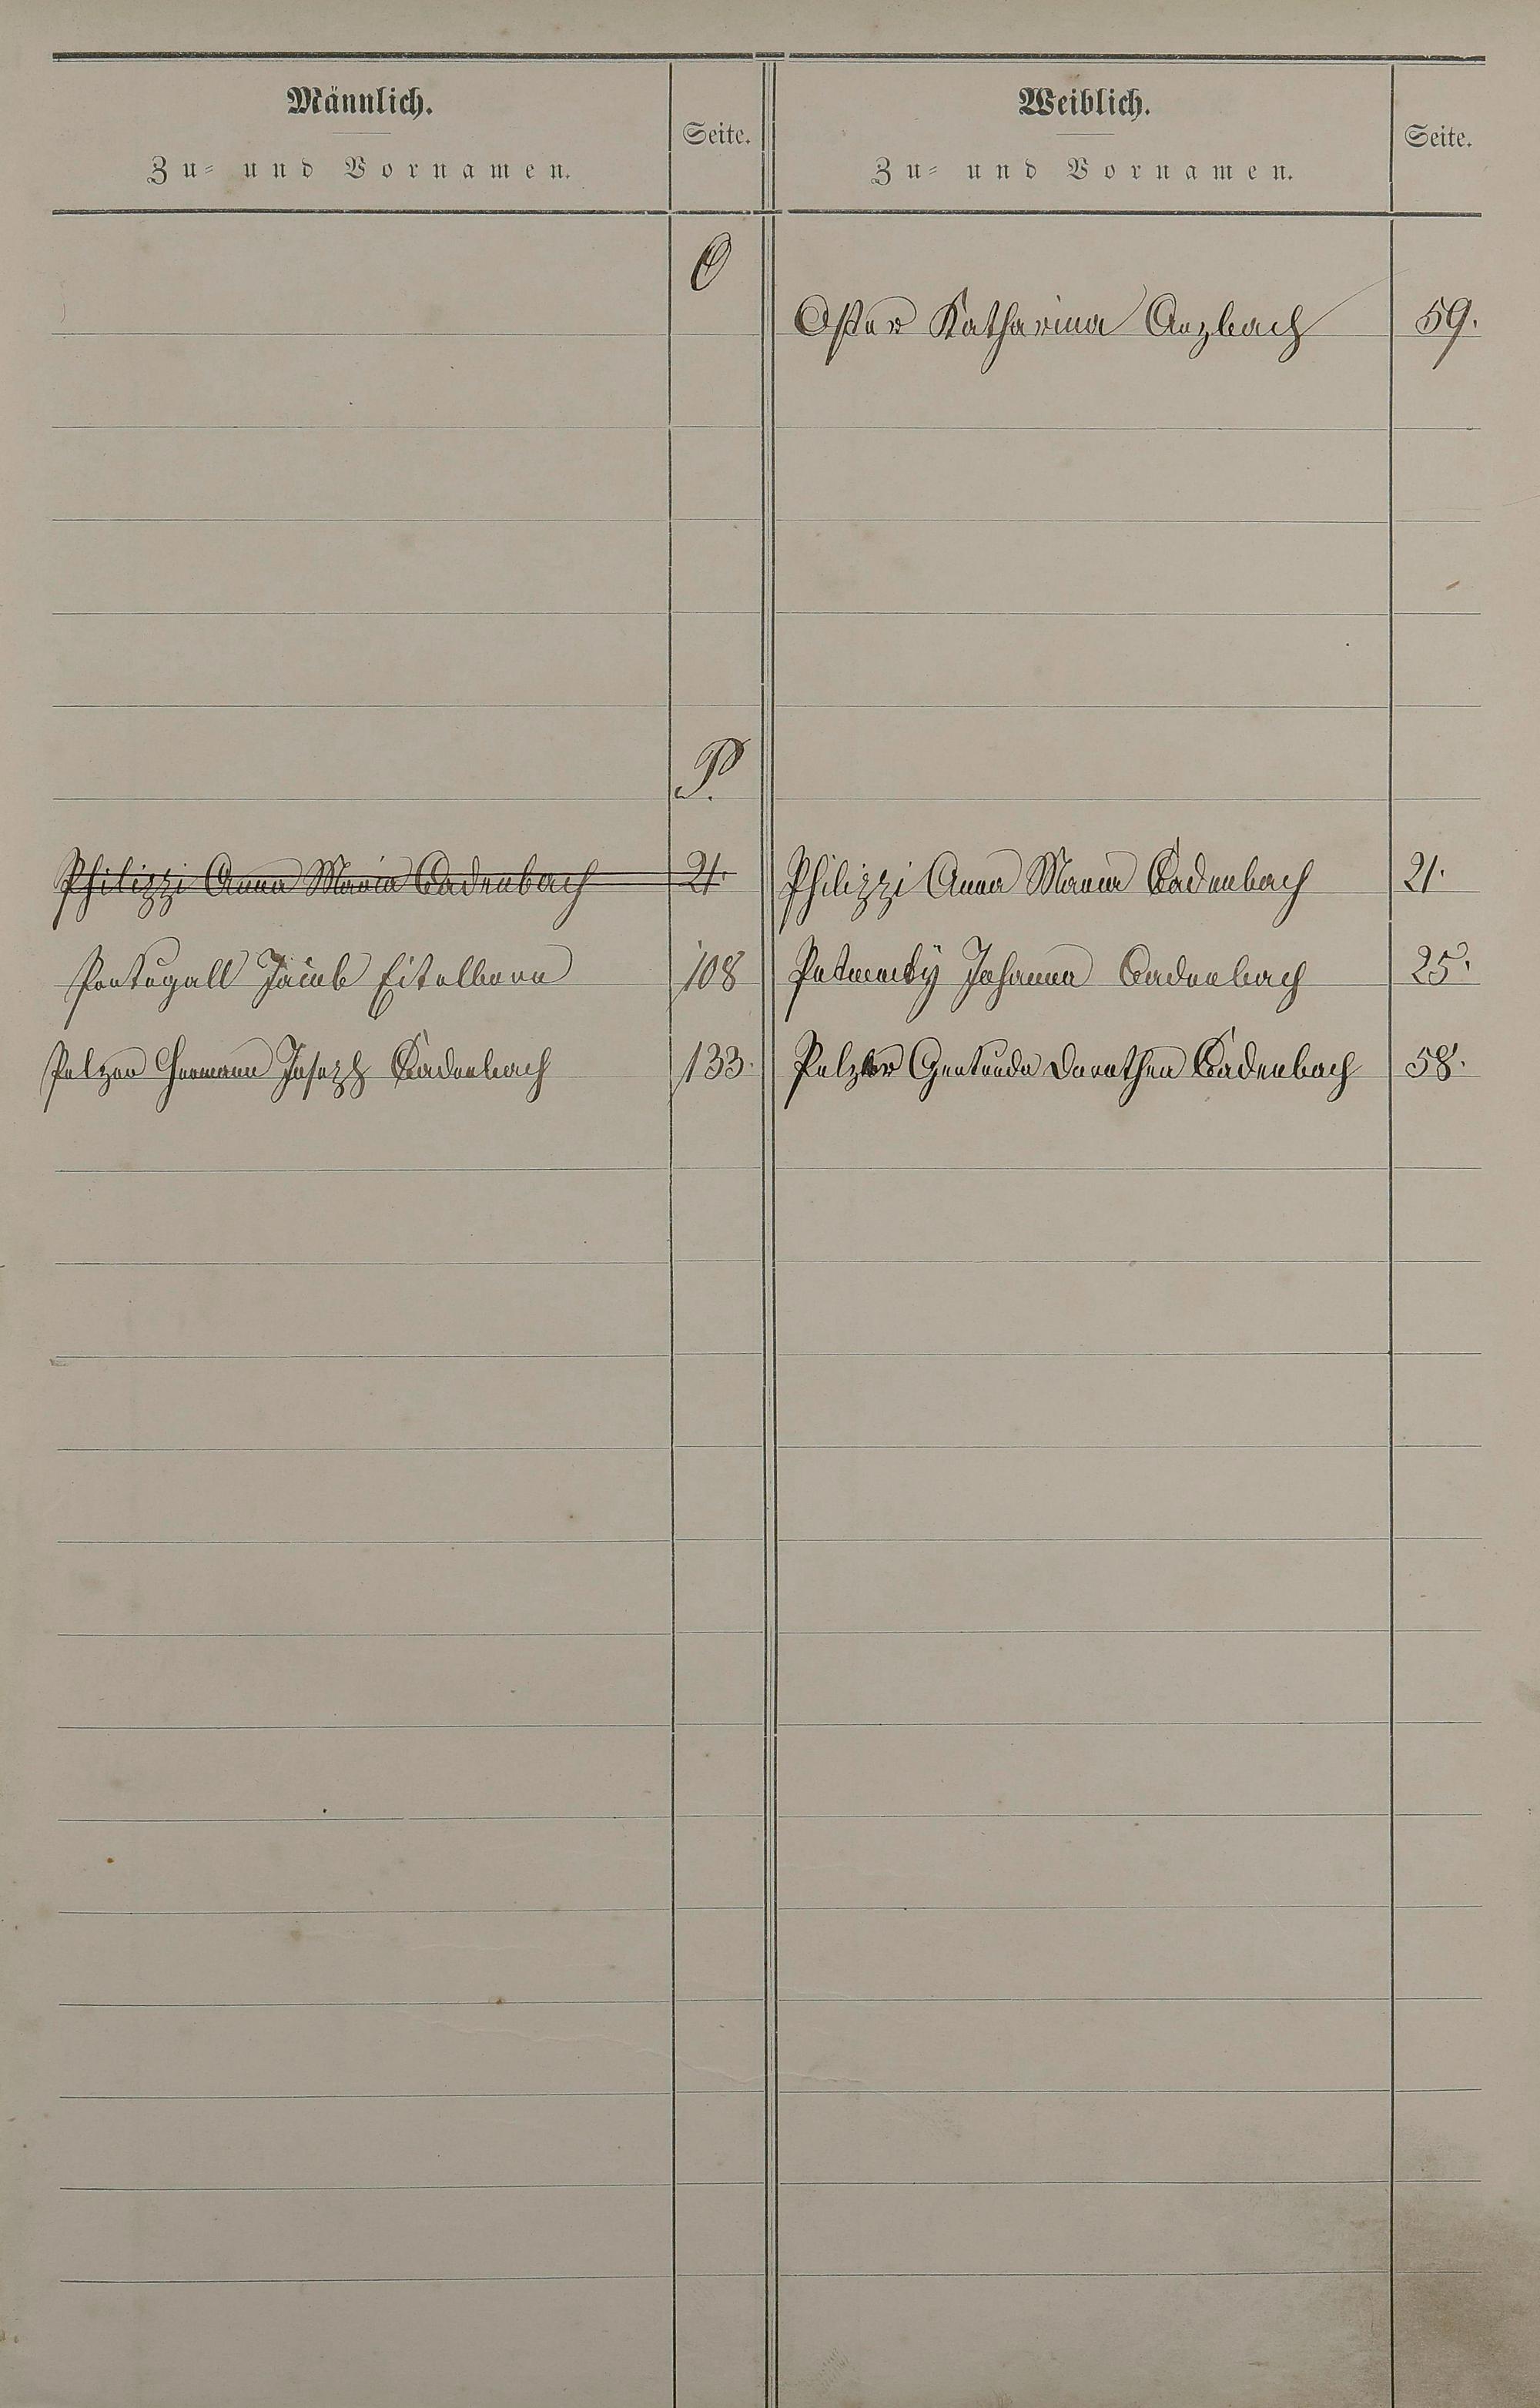 Männlich.
Zu- und Vornamen.
Seite.
Weiblich.
Zu- und Vornamen.
Seite.
O
Oster Katharina Arzbach 59.
P.
Philippi Anna Maria Cadenbach 21.
Philippi Anna Maria Cadenbach 21.
Portugall Jacob Eitelborn 108
Johanna Cadenbach 25.
Pelzer Hermann Joseph Cadenbach 133.
Pelzer Gertruda Dorothea Cadenbach 58.